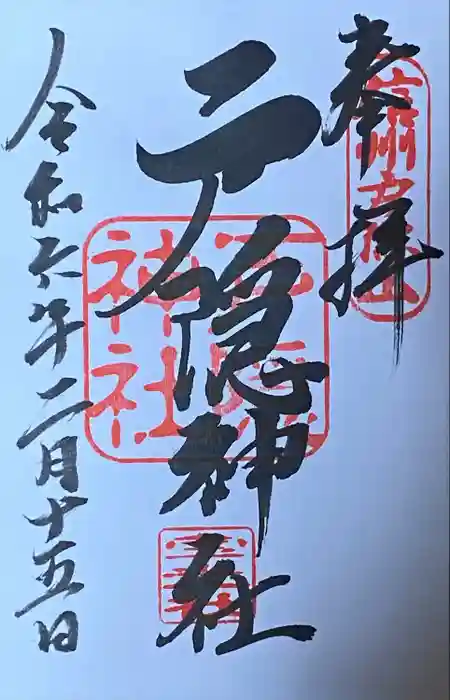 奉拝
信州戸隠山
戸隠神社
戸隠
神社
令和六年二月十五日